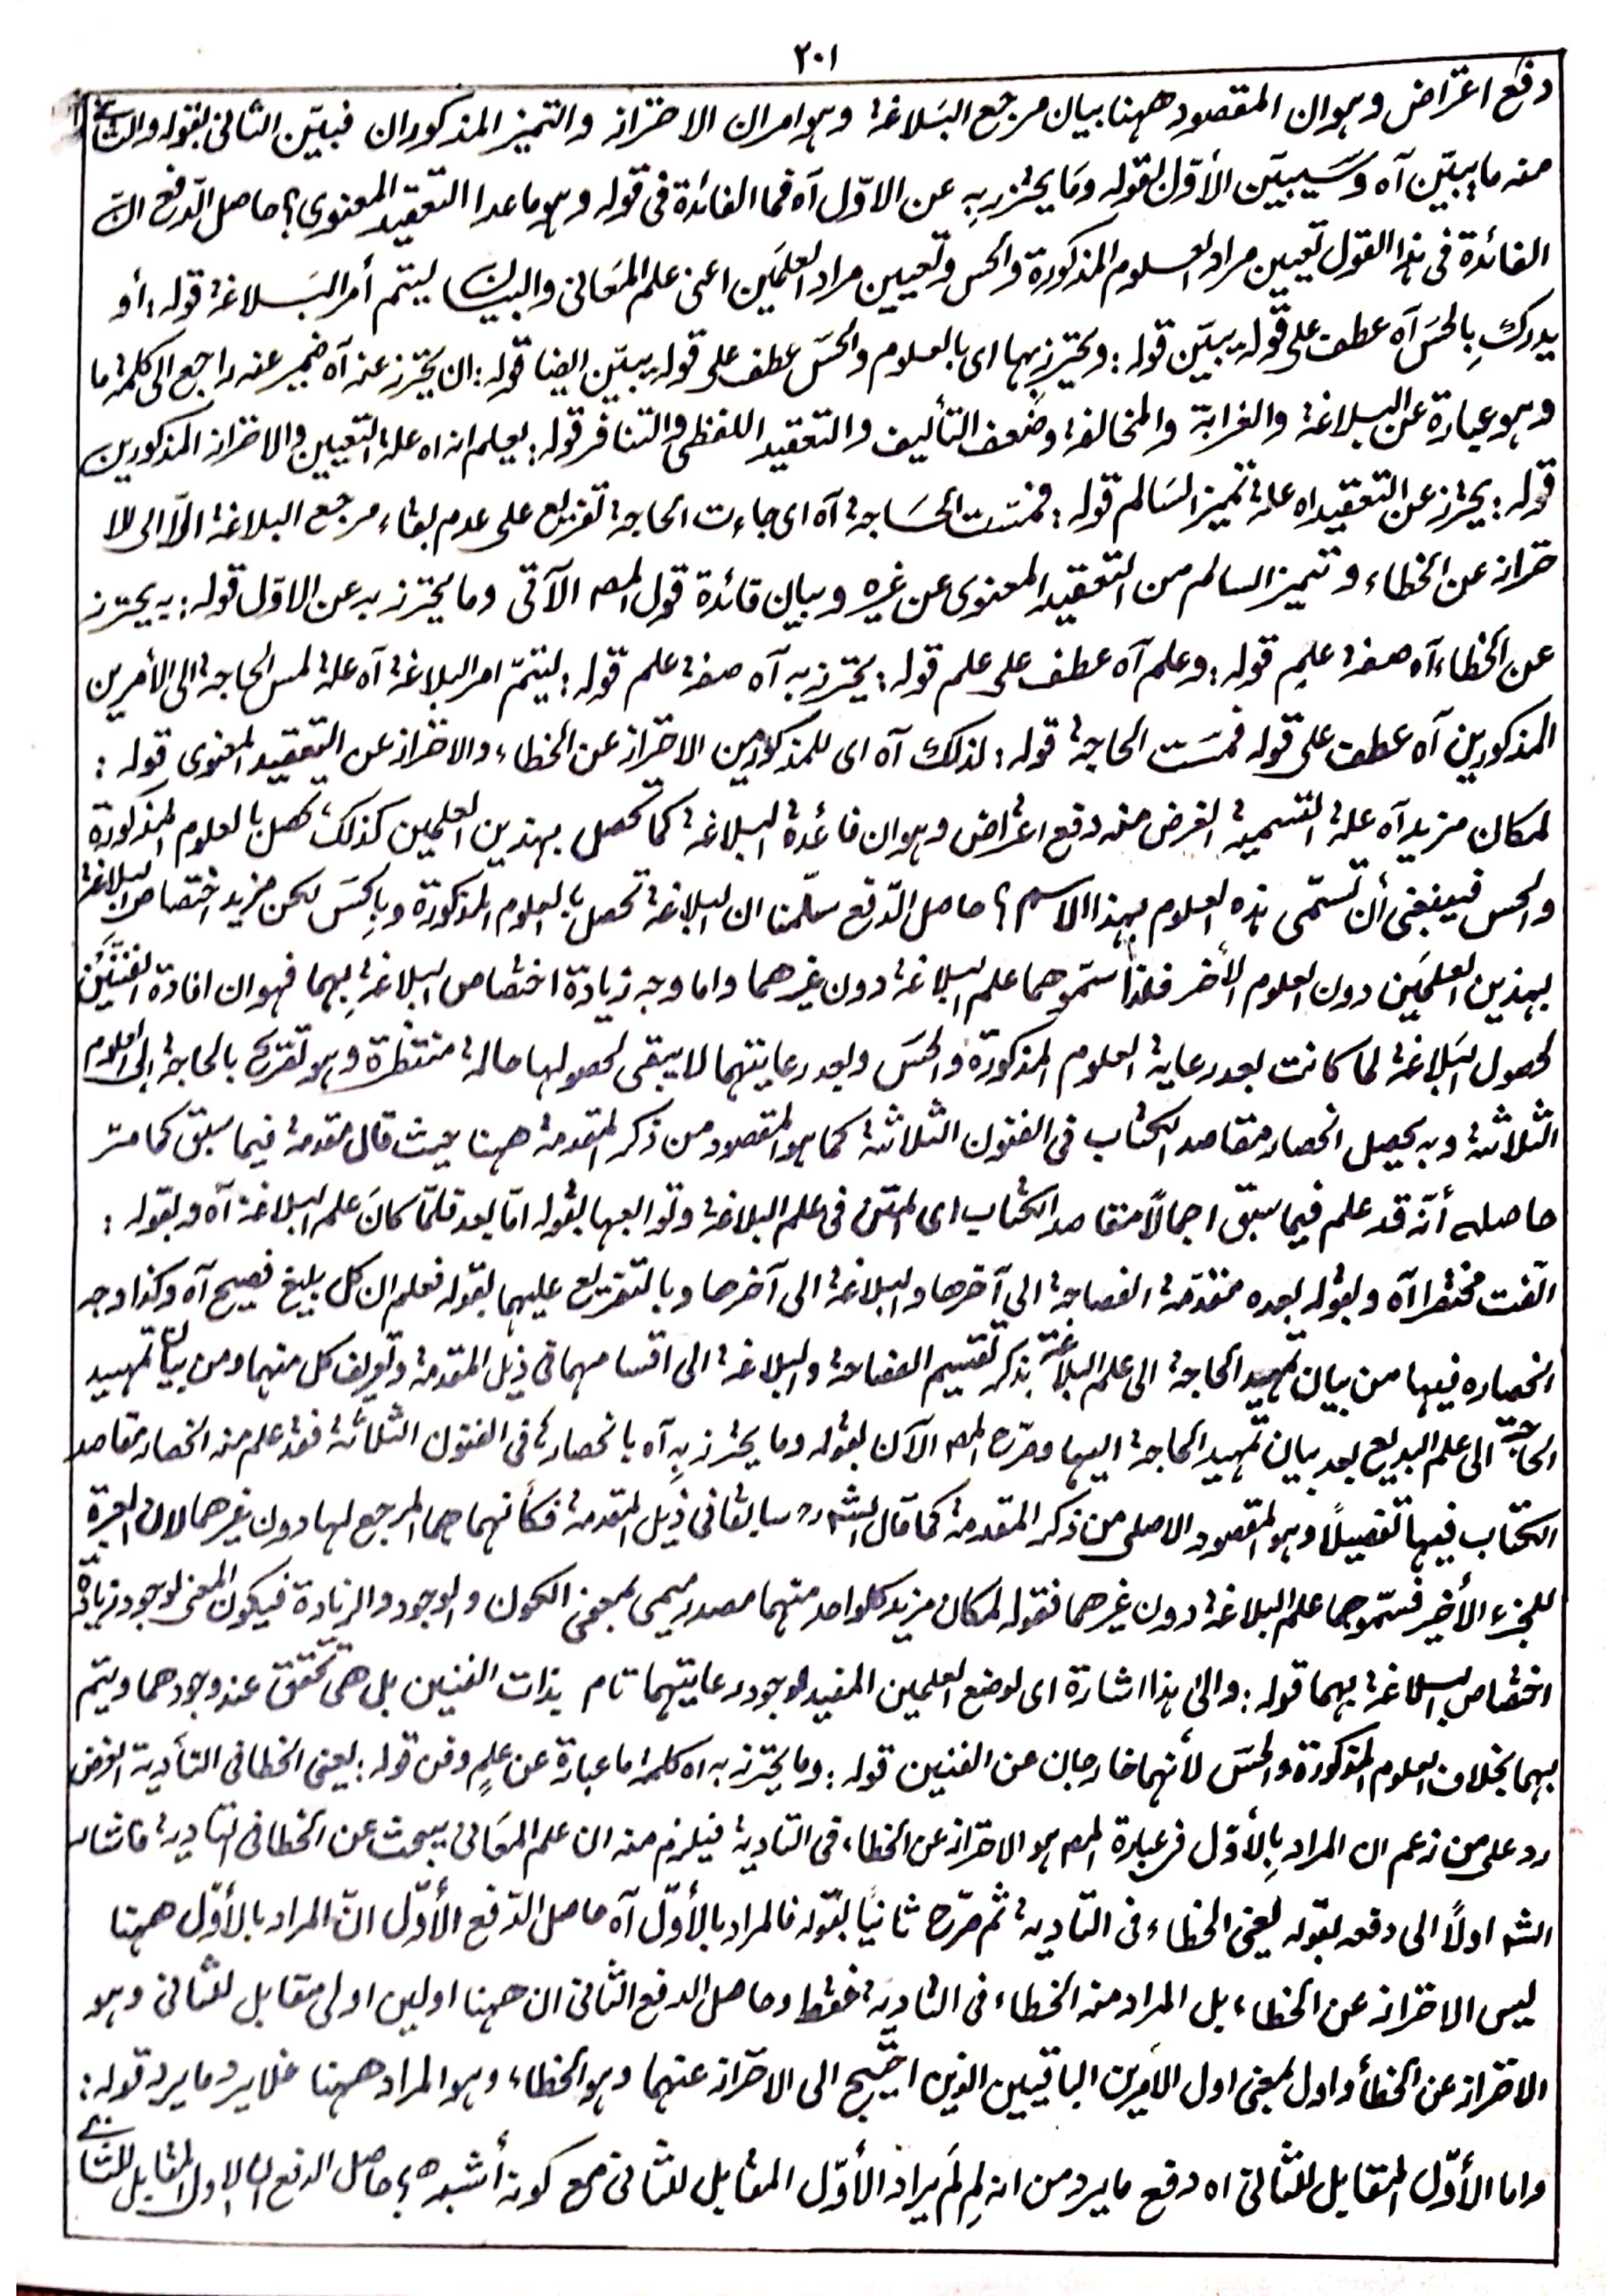 ٢٠١
دفع اعتراض وہوان المقصود ههنا بيان مرجع البَلاغة وہو امران الاحتراز والتميز المذكوران فبيّن الثانی بقوله والثانی
منه ما يبيّن آه وَسَيبيّن الأوّل بقوله ومَا يحترز بِهٖ عن الاوّل آه فما الفائدة فی قوله وہو ماعدا التعقيد المعنوی؟ حاصل الدّفع انّ
الفائدة فی ہذا القول تعيين مراد العلوم المذكورة والحس وتعيين مراد العلمَين اعنی علم المعَانی والبيان ليتم أمر البَلاغة قوله: أو
يدرك بِالحسّ آه عطف علی قوله يبيّن قوله: ويحترز بہا ای بالعلوم والحسّ عطف علی قوله يبيّن ايضا قوله: ان يحترز عنه آه ضمير عنه راجع الی كلمة ما
وہو عبارة عن البلاغة والغرابة والمخالفة وضُعف التأليف والتعقيد اللفظی والتنافر قوله: ليعلم انه اه علة التعيين والاحتراز المذكورين
قوله: يحترز عن التعقيد اه علة تميز السَالم قوله: فمسّت الحَاجة آه ای جاءت الحاجة تفريع علی عدم بقاء مرجع البلاغة الّا الی الا
حتراز عن الخطاء وتميز السالم من التعقيد المعنوی عن غيره وبيان فائدة قول المصـ الآتی وما يحترز به عن الاوّل قوله: به يحترز
عن الخطاء آه صفة علمٍ قوله: وعلم آه عطف علی علم قوله: يحترز به آه صفة علم قوله: ليتمّ امر البلاغة آه علة لمس الحاجة الی الأمرين
المذكورين آه عطف علی قوله فمسَت الحاجة قوله: لذلك آه ای للمذكور من الاحتراز عن الخطاء والاحتراز عن التعقيد المعنوی قوله:
لمكان مزيد آه علة التسمية الغرض منه دفع اعتراض وہو ان فائدة البلاغة كما تحصل بہذين العلمين كذلك تحصل بالعلوم المذكورة
والحس فينبغی أن تسمّی ہذه العلوم بہذا الاسم؟ حاصل الدّفع سلّمنا ان البلاغة تحصل بالعلوم المذكورة وبِالحسَ لكن مزيد اختصاص البلاغة
بہذين العلمَين دون العلوم الأخر فلذا سمّوهما علم البلاغة دون غيرهما واما وجه زيادة اختصاص البلاغة بِہما فہو ان افادة الفنّيَن
لحصول البَلاغة لما كانت بعد رعاية العلوم المذكورة والحسّ وبعد رعايتهما لا يبقی لحصولها حالة منتظرة وہو تصريح بالحاجة إلی العلوم
الثلاثة وبه يحصل انحصار مقاصد الكتاب فی الفنون الثلاثة كما ہو المقصود من ذكر المقدمة ههنا حيث قال مقدمة فيما سبق كما مرّ
حاصله أنّه قد علم فيما سبق اجمالاً مقاصد الكتاب ای المتن فی علم البلاغة وتوابعها بقوله امّا بعد فلمّا كانَ علم البلاغة آه وبقوله:
الّفت مختصرا آه وبقوله بعده مقدّمة الفصاحة الی آخرها والبلاغة الی آخرها وبالتفريع عليهما بقوله فعلم ان كل بليغ فصيح آه وكذا وجه
انحصاره فيها من بيان تمہيد الحاجة الی علم البلاغة بذكر تقسيم الفصاحة والبلاغة الی اقسامهما فی ذيل المقدمة وتعريف كل منهما ومن بيان تمہيد
الحاجة الی علم البديع بعد بيان تمہيد الحاجة اليہا وصرّح المصـ الآن بقوله وما يحترز بِه آه بانحصاره فی الفنون الثلاثة فقد علم منه انحصار مقاصد
الكتاب فيها تفصيلاً وہو المقصود الاصلی من ذكر المقدمة كما قال الشـ سابقا فی ذيل المقدمة فكأنهما هما المرجع لہا دون غيرهما لان العبرة
للجزء الأخير فسمّوهما علم البلاغة دون غيرهما فقوله لمكان مزيد كلواحد منهما مصدر ميمی بمعنی الكون والوجود والزيادة فيكون المعنی لوجود زيادة
اختصاص البلاغة بهما قوله: والی ہذا اشارة ای لوضع العلمين المفيد لوجود رعايتهما تام بذات الفنين بل هی تحقق عند وجودهما ويتم
بہما بخلاف العلوم المذكورة والحسّ لأنهما خارجان عن الفنين قوله: وما يحترز به اه كلمة ما عبارة عن علمٍ وفن قوله: يعنی الخطا فی التأدية الغرض
رد علی من زعم ان المراد بِالأوّل فی عبارة المصـ ہو الاحتراز عن الخطاء فی التادية فيلزم منه ان علم المعَانی يبحث عن الخطا فی التادية فاشار
الشـ اولاً الی دفعه بقوله يعنی الخطاء فی التادية ثم صرّح ثانيًا بقوله فالمراد بالأوّل آه حاصل الدّفع الأوّل انّ المراد بالأوّل ههنا
ليس الاحتراز عن الخطاء بل المراد منه الخطاء فی التادية فقط وحاصل الدفع الثانی ان ههنا اولين اولی مقابل للثانی وہو
الاحتراز عن الخطأ واول بمعنی اول الأمرين الباقيين الذين احتيج الی الاحتراز عنهما وہو الخطاء وہو المراد ههنا فلا يرد ما يرد قوله:
واما الأوّل المقابل للثانی اه دفع ما يرد من انه لِم لَم يراد الأوّل المقابل للثانی مع كونه أشبه؟ حاصل الدفع ان الاول المقابل للثانی